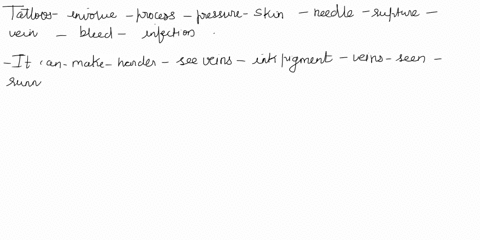 Tattoos- involve -process - pressure- skin - needle - rupture -
vein - bleed - infection .
-It can -make- harder - see veins - ink pigment - veins - seen -
runn